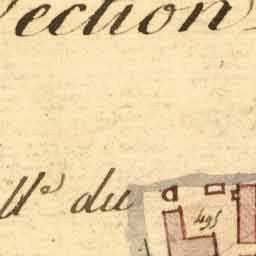 ection
ll.e du
495